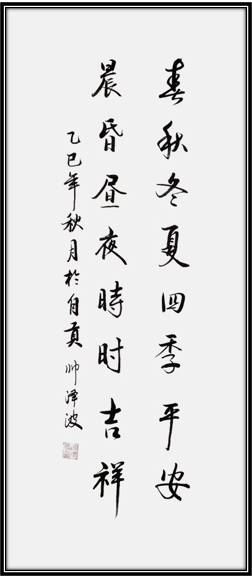 春秋冬夏四季平安
晨昏昼夜時时吉祥
乙巳年秋月於自贡帅泽波